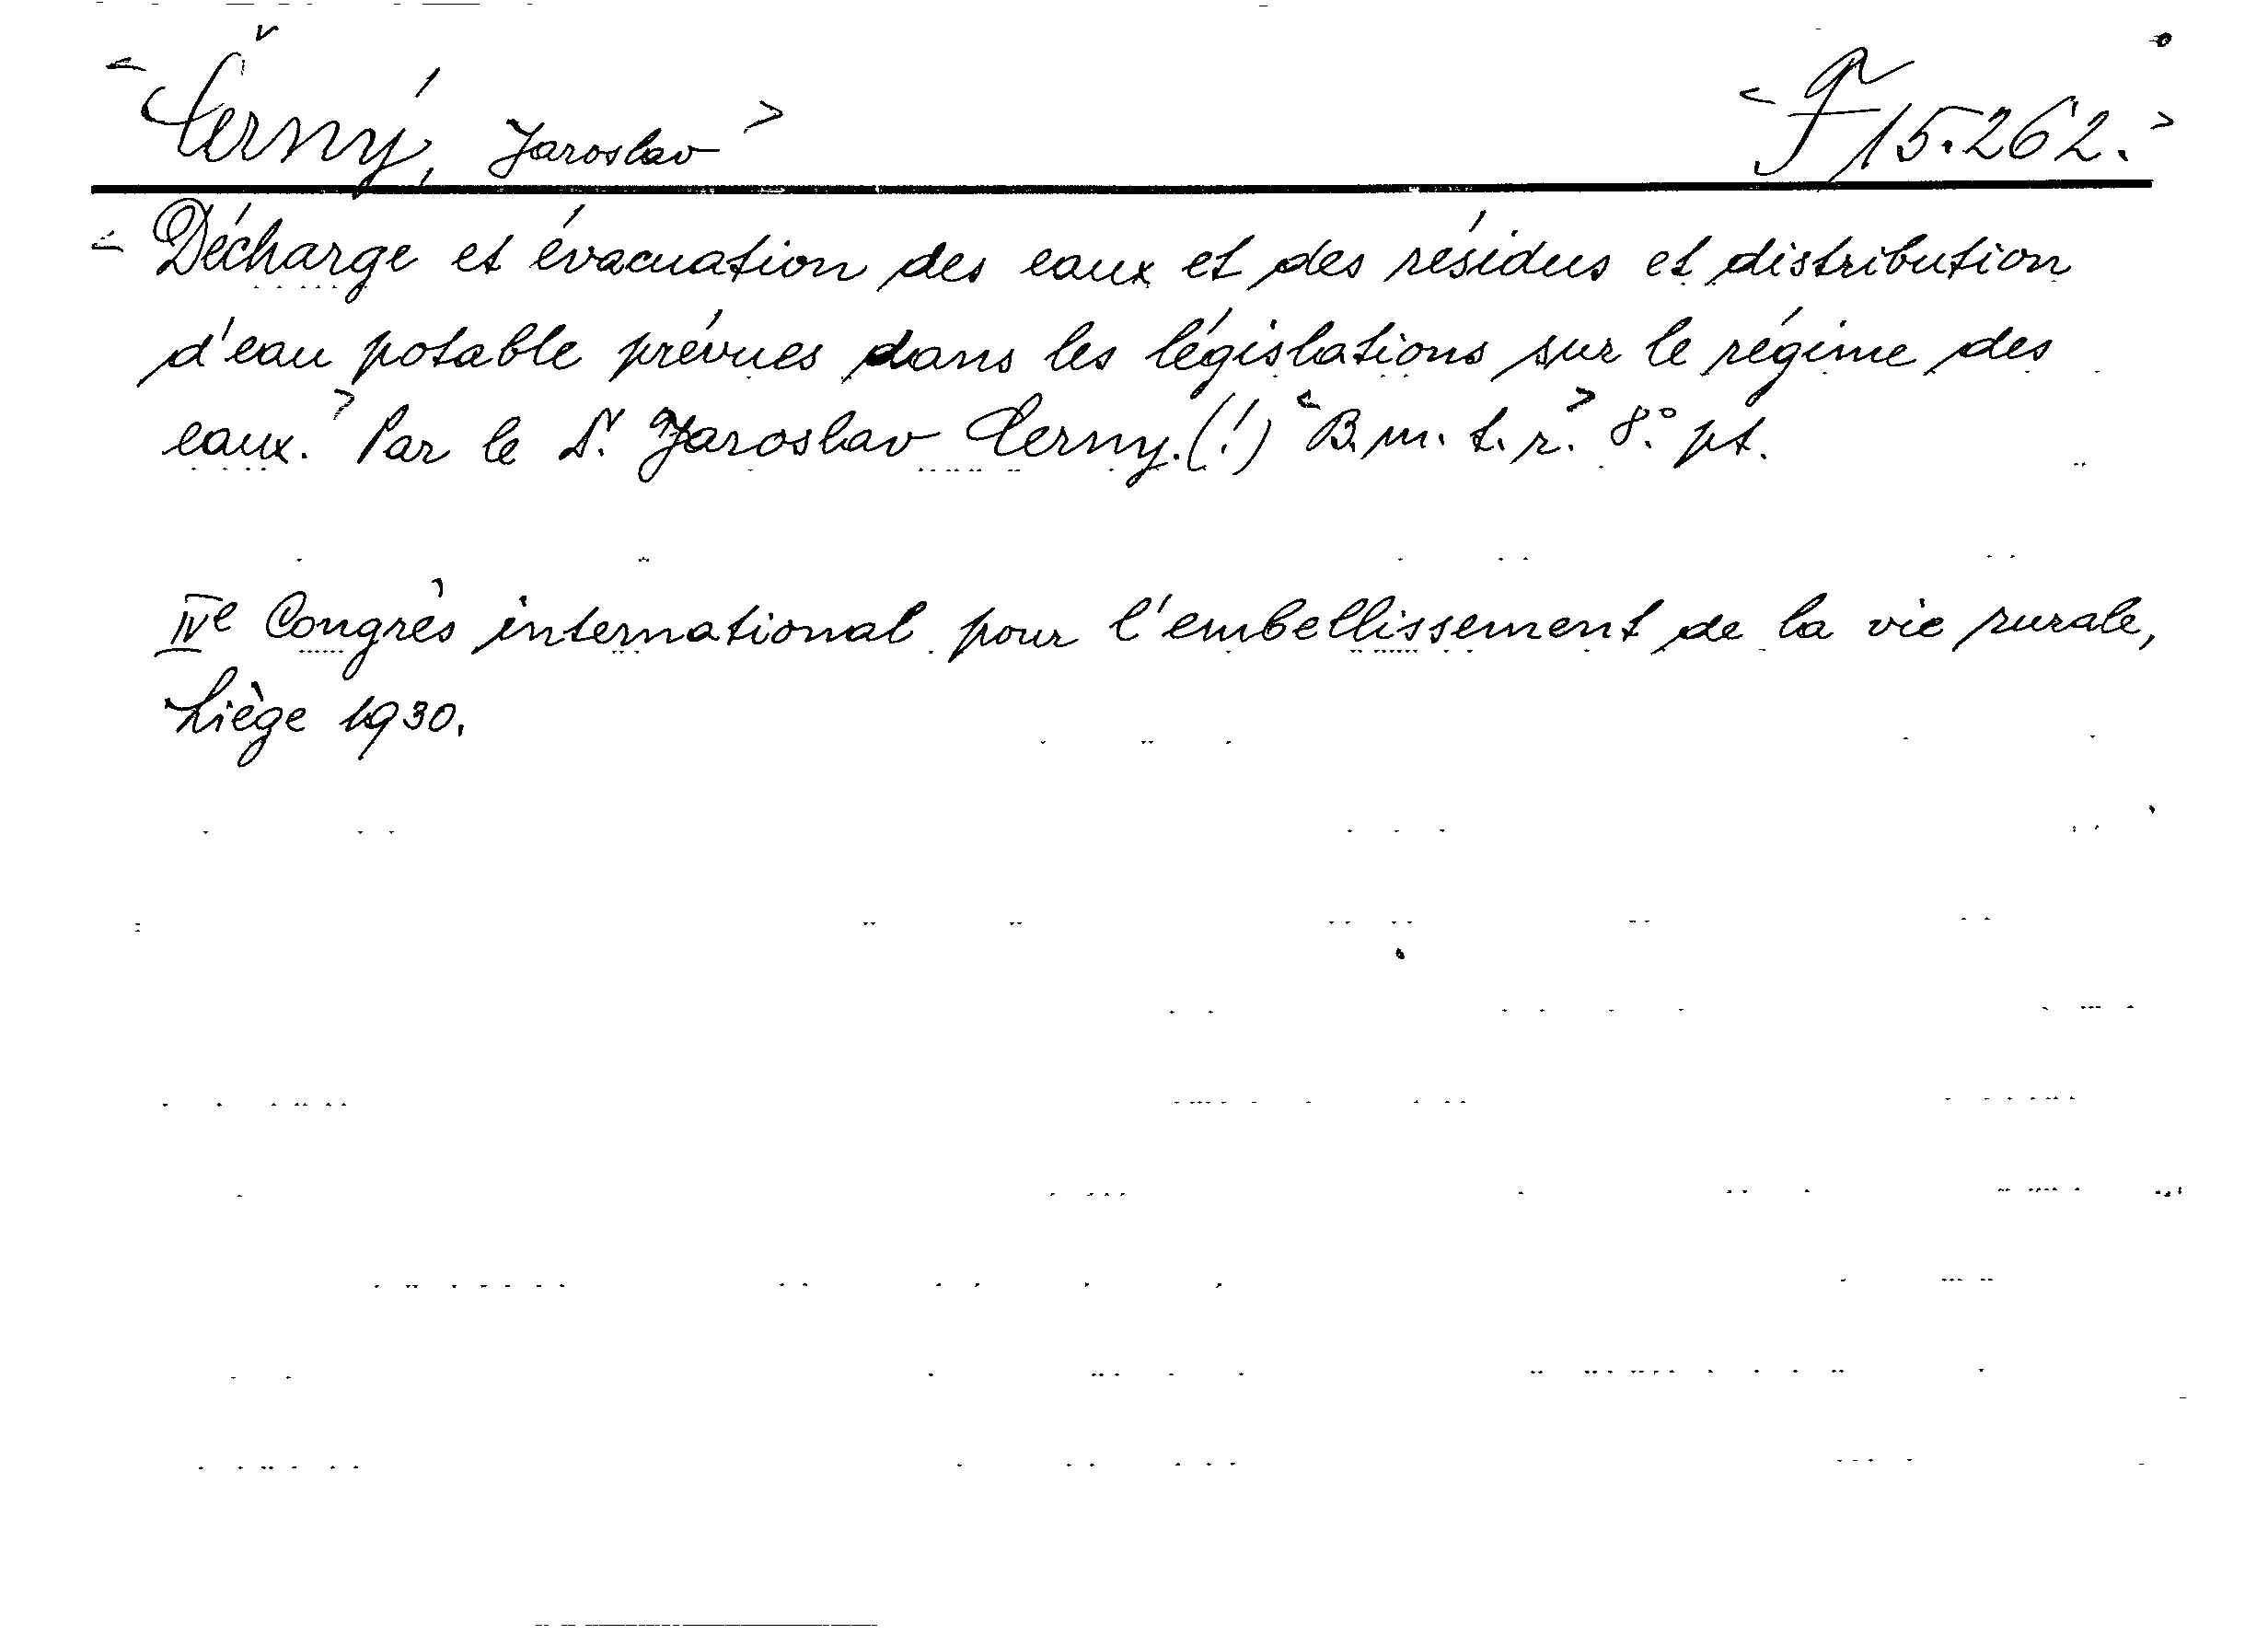 <Černý, Jaroslav> <F 15.262.>
<Décharge et évacuation des eaux et des résidus et distribution
d'eau potable prévues dans les législations sur le régime des
eaux.> Par le Dr. Jaroslav Cerny.(!) <B. m. t. r.> 8.° pt.
IVe Congrès international pour l'embellissement de la vie rurale,
Liège 1930.